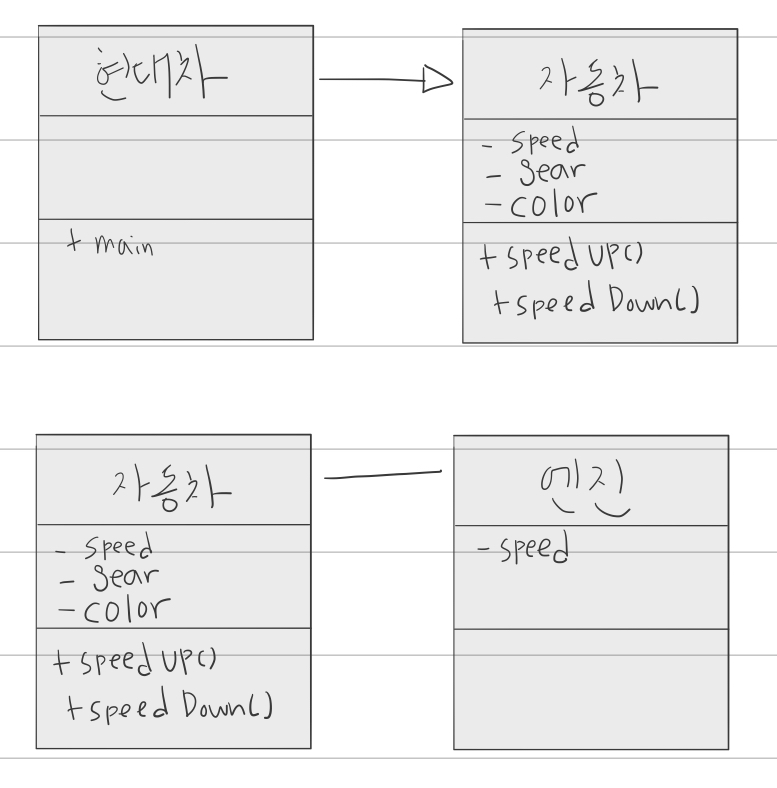 현대차
+ main
자동차
- speed
- gear
- color
+ speed UP()
+ speed Down()
자동차
- speed
- gear
- color
+ speed UP()
+ speed Down()
엔진
- speed